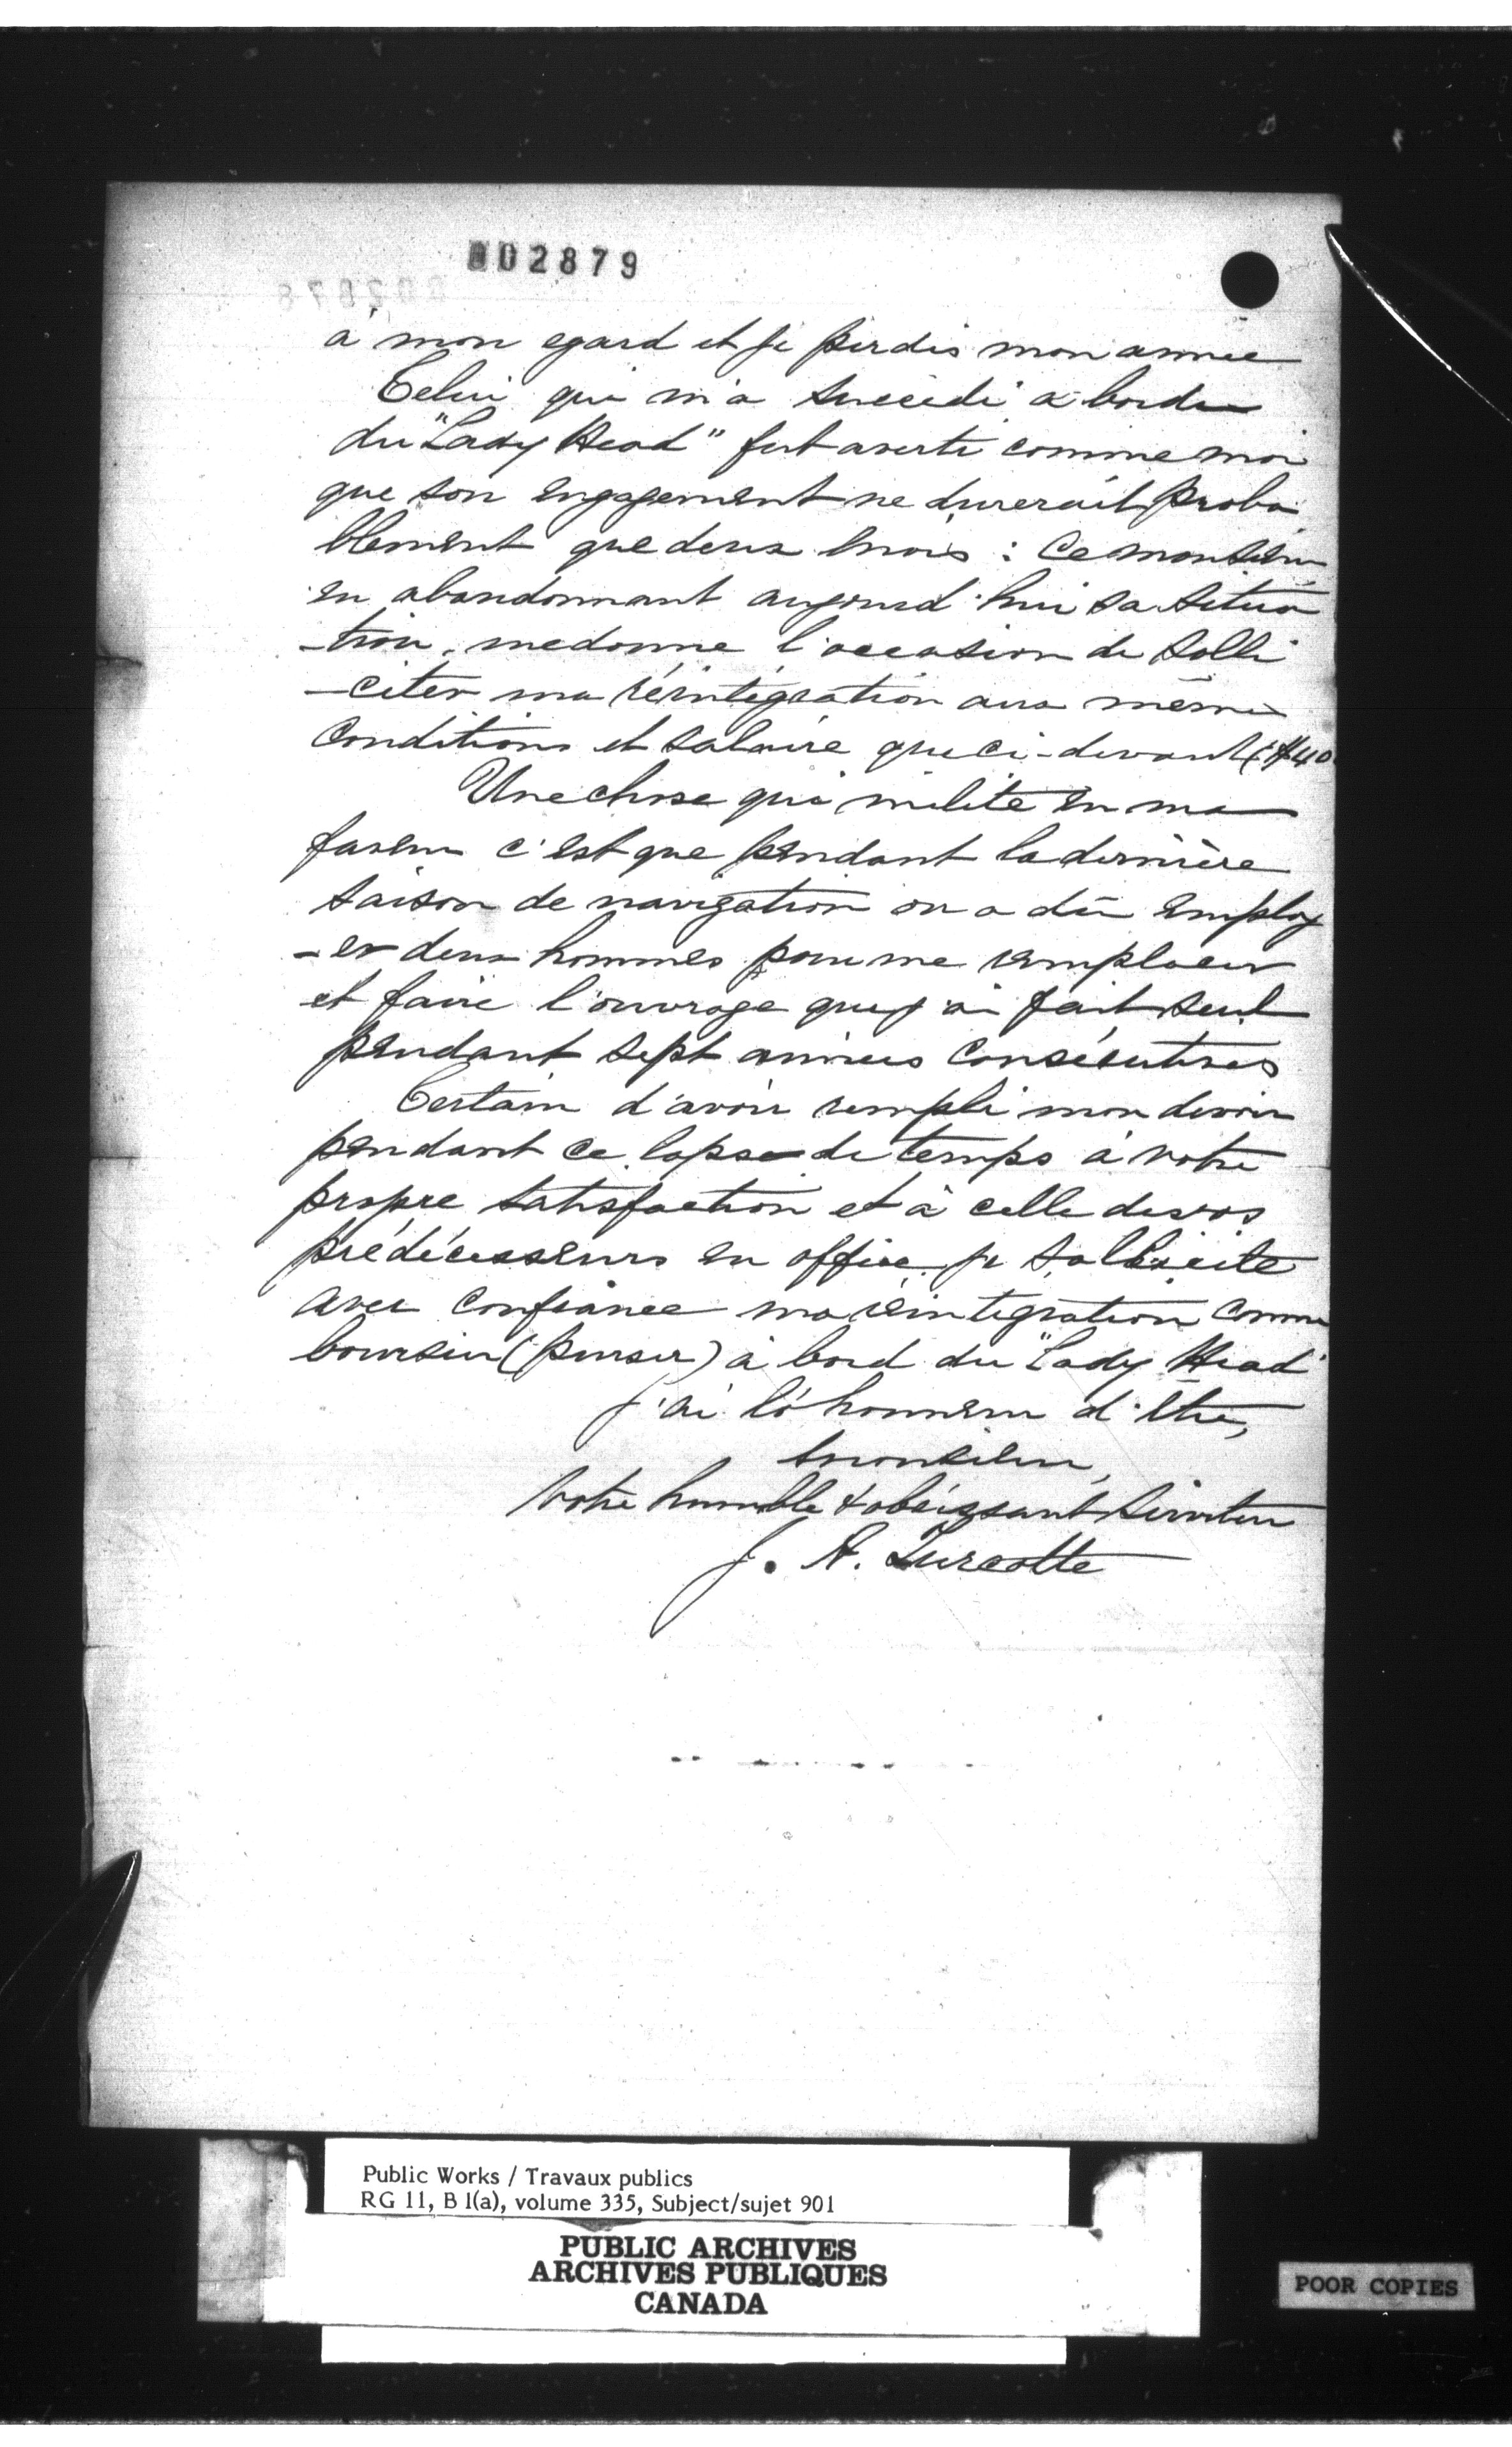 002879
à mon egard et je perdis mon année
Celui qui m'a succédé à bord
du "Lady Head" fut averti comme moi
que son engagement ne durerait proba
blement que deux mois : Ce monsieur
en abandonnant aujourd'hui sa situa
-tion, me donne l'occasion de solli
-citer ma réintégration aux mêmes
conditions et salaire que ci-devant ($40
Une chose qui milite en ma
faveur c'est que pendant la dernière
saison de navigation on a dû employ
-er deux hommes pour me remplacer
et faire l'ouvrage que j'ai fait seul
pendant sept années consécutives
Certain d'avoir rempli mon devoir
pendant ce laps de temps à votre
propre satisfaction et à celle de vos
prédécesseurs en office je sollicite
avec confiance ma réintégration comme
boursier (purser) à bord du "Lady Head"
J'ai l'honneur d'être,
Monsieur,
Votre humble & obéissant serviteur
J. A. Turcotte
Public Works / Travaux publics
RG 11, B 1(a), volume 335, Subject/sujet 901
PUBLIC ARCHIVES
ARCHIVES PUBLIQUES
CANADA
POOR COPIES